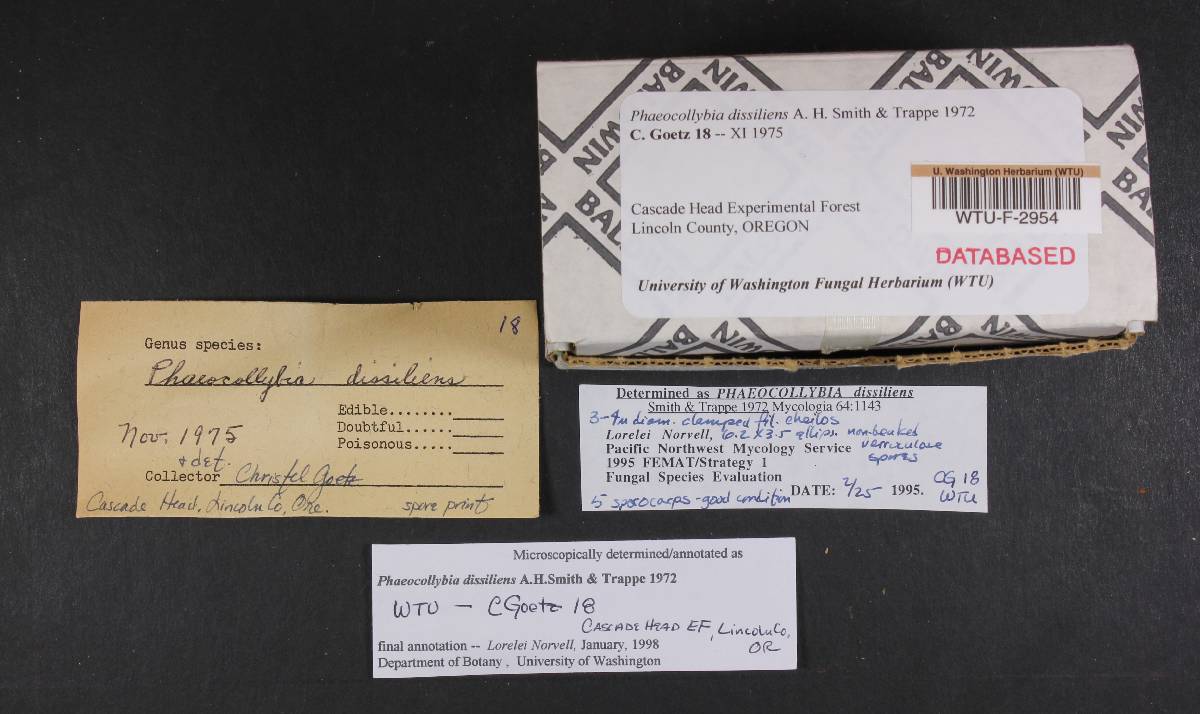 BALDWIN
Phaeocollybia dissiliens A. H. Smith & Trappe 1972
C. Goetz 18 -- XI 1975
U. Washington Herbarium (WTU)
WTU-F-2954
Cascade Head Experimental Forest
Lincoln County, OREGON
DATABASED
University of Washington Fungal Herbarium (WTU)
18
Genus species:
Phaeocollybia dissiliens
Edible........
Doubtful......
Poisonous.....
Nov. 1975
& det.
Collector Christel Goetz
Cascade Head, Lincoln Co, Ore. spore print
Determined as PHAEOCOLLYBIA dissiliens
Smith & Trappe 1972 Mycologia 64:1143
3-4u diam. clamped fil. cheilos
Lorelei Norvell, 6.2 x 3.5 ellips. nonbeaked
Pacific Northwest Mycology Service verruculose
1995 FEMAT/Strategy 1 spores
Fungal Species Evaluation
5 sporocarps - good condition DATE: 2/25 1995.
CG 18
WTU
Microscopically determined/annotated as
Phaeocollybia dissiliens A.H.Smith & Trappe 1972
WTU - CGoetz 18
CASCADE HEAD EF, Lincoln Co,
OR
final annotation -- Lorelei Norvell, January, 1998
Department of Botany , University of Washington